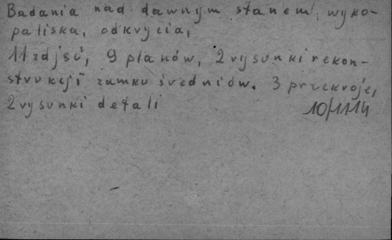 Badania nad dawnym stanem, wyko-
paliska, odkrycia,
11 zdjęć, 9 planów, 2 rysunki rekon-
strukcji zamku średniow. 3 przekroje,
2 rysunki detali
10/1114